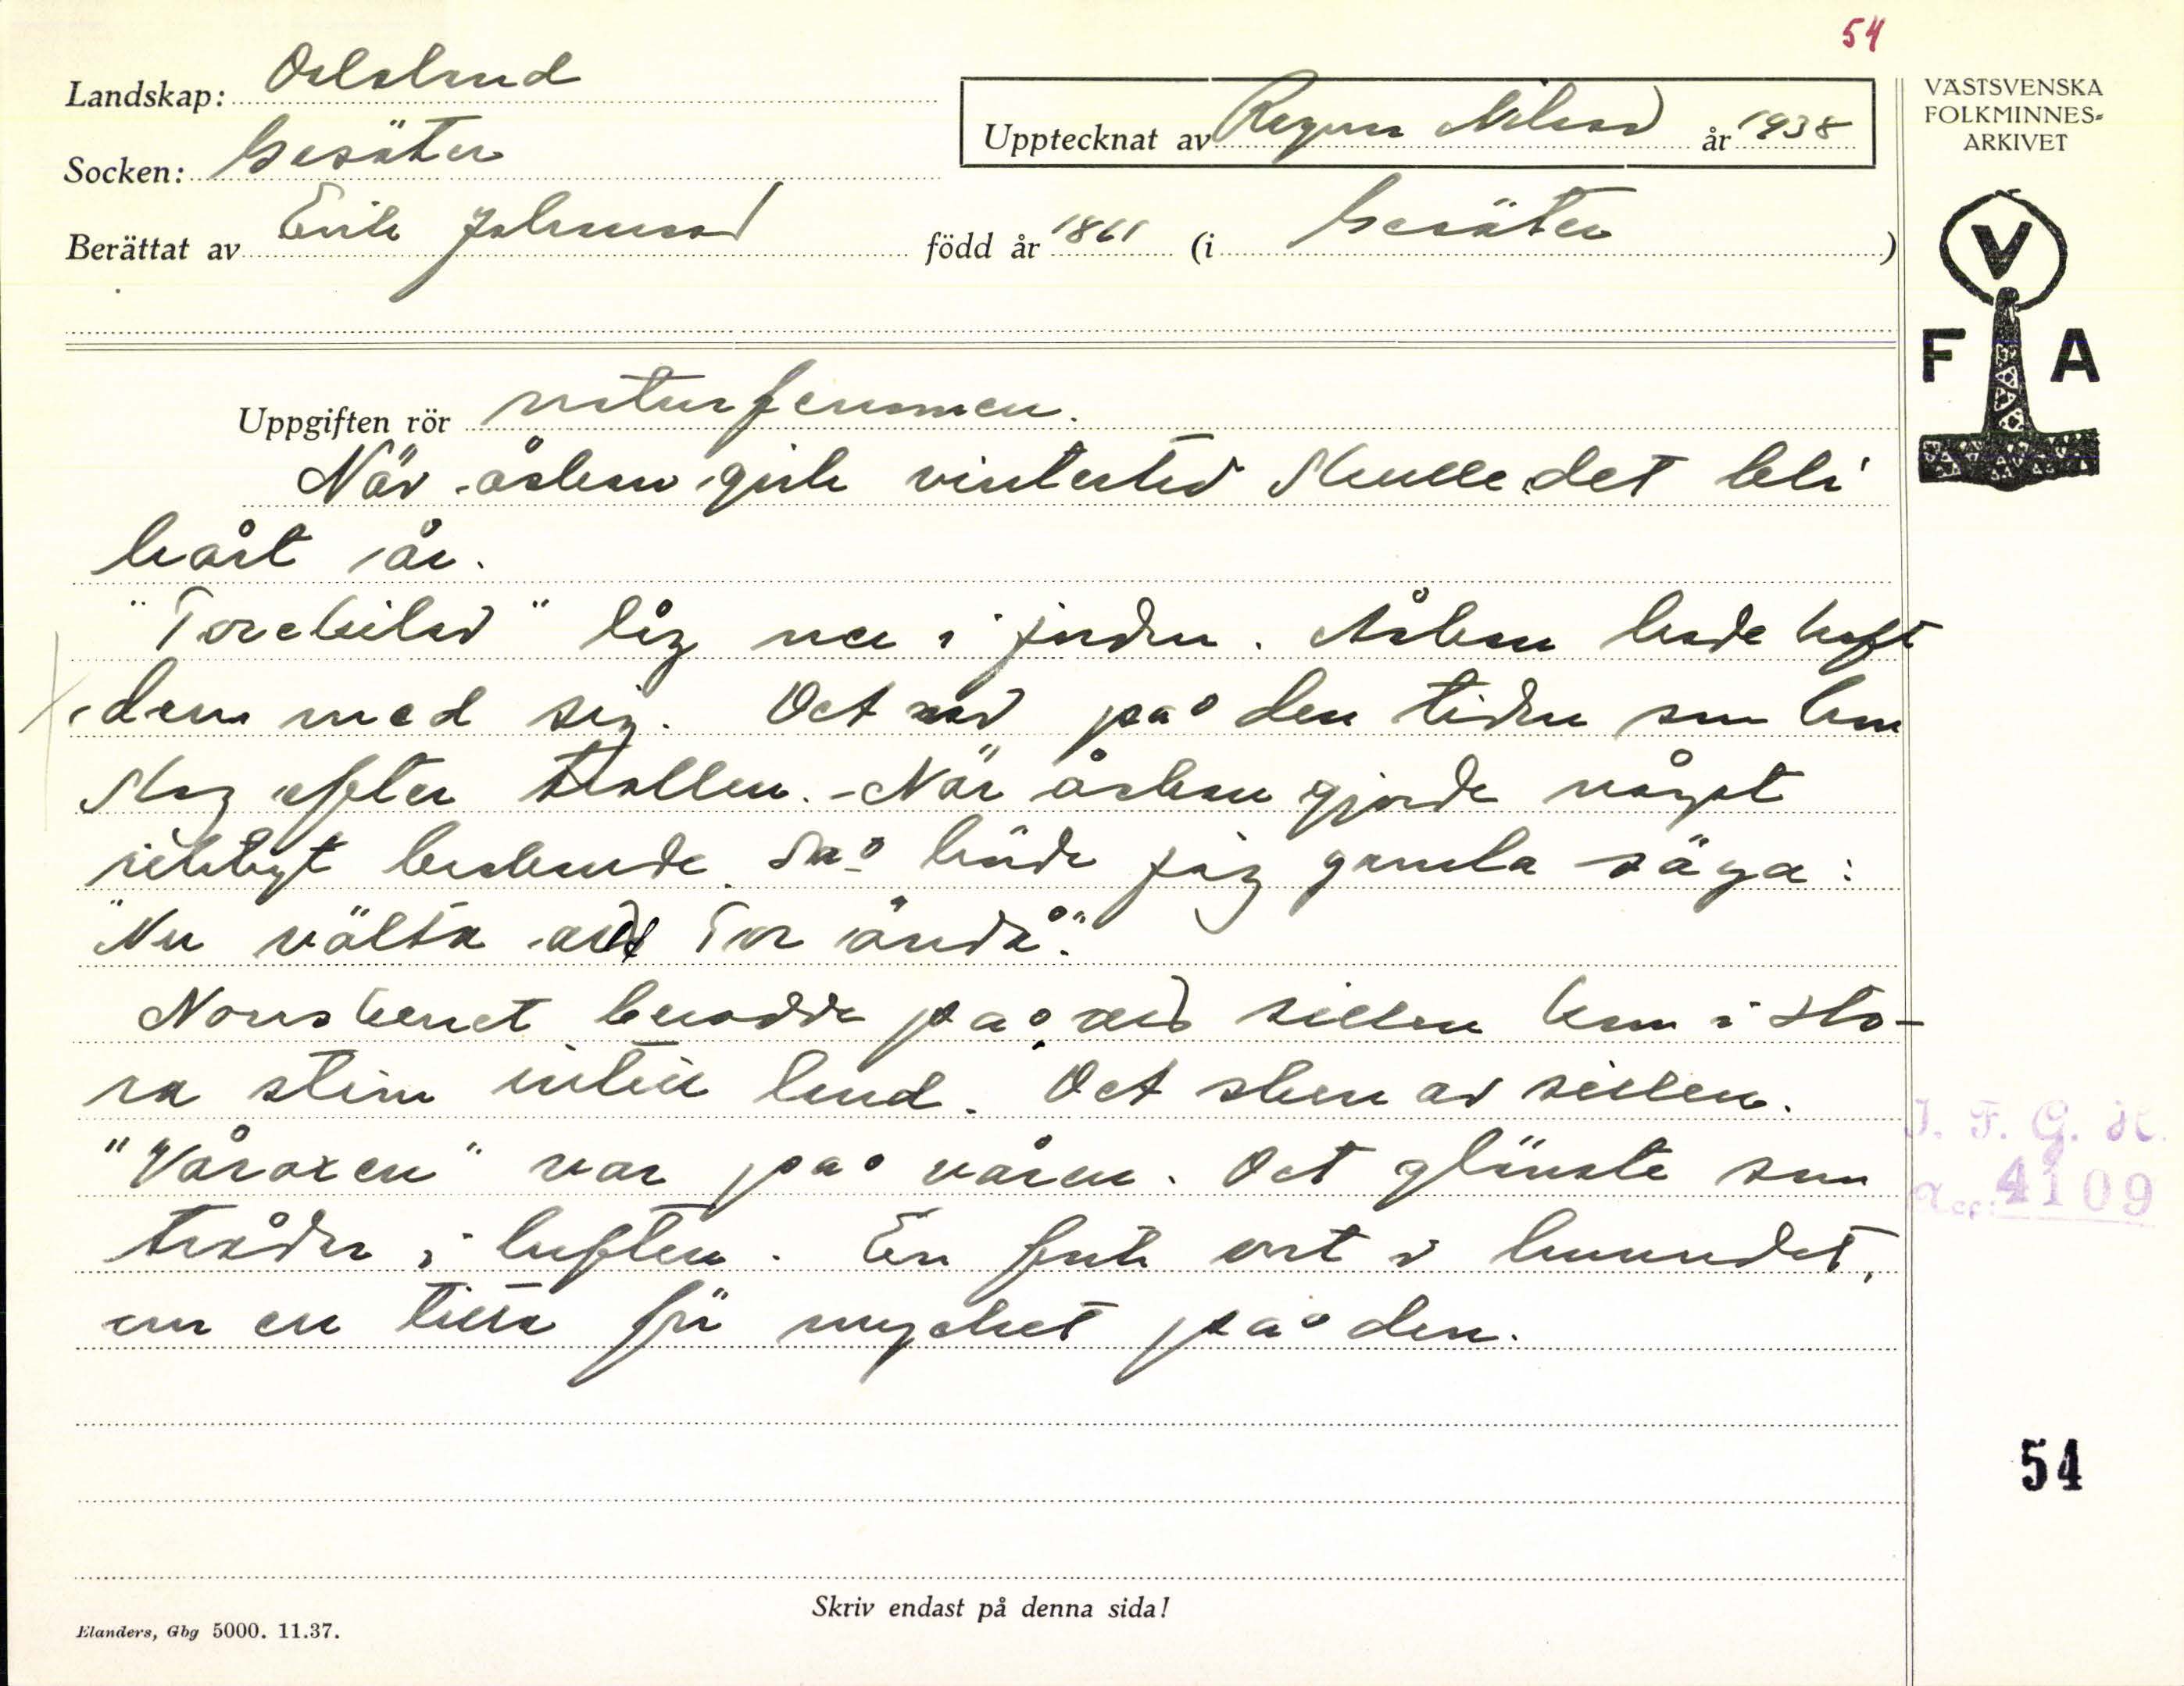 54
Landskap: Dalsland
Socken: Gesäter
Berättat av Erik Johansson
Upptecknat av Ragnar Nilsson år 1938
född år 1861 (i Gesäter)
VÄSTSVENSKA
FOLKMINNES-
ARKIVET
V
F A
Uppgiften rör naturfenomen.
När åskan gick vintertid skulle det bli
hårt år.
"Torekilar" låg ner i jorden. Åskan hade haft
dem med sig. Det var på den tiden som han
slog efter trollen. - När åskan gjorde något
riktigt brakande så hörde jag gamla säga:
"Nu välta allt Tor ändå."
Norskenet berodde på när sillen kom i sto-
ra stim intill land. Det sken av sillen.
"Våraxen" var på våren. Det glänste som
trådar i luften. En fick ont i huvudet,
om en titta för mycket på den.
I. F. G. H.
Acc: 4109
54
Skriv endast på denna sida!
Elanders, Gbg 5000. 11.37.